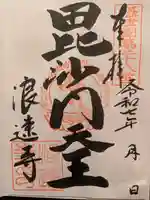 奉拝
令和七年 月 日
毘沙門天王
浪速寺